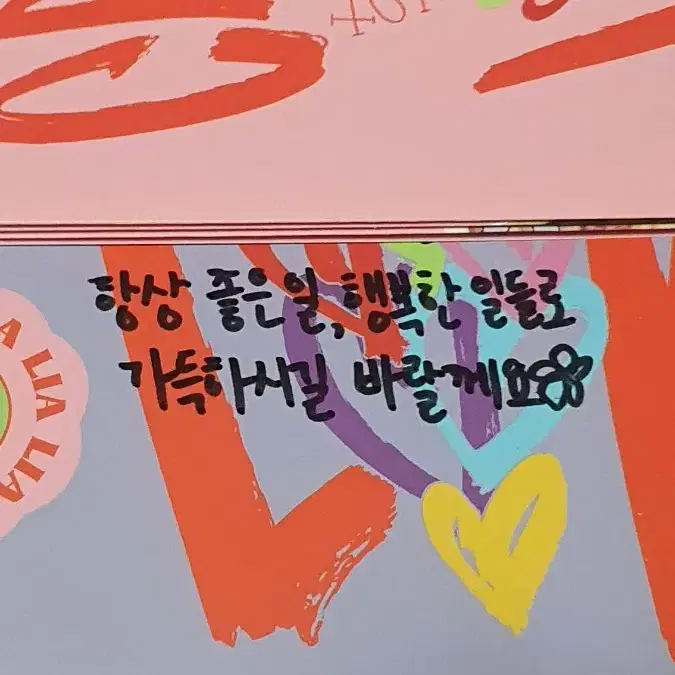 항상 좋은일, 행복한 일들로
가득하시길 바랄께요
A LIA LIA LIA